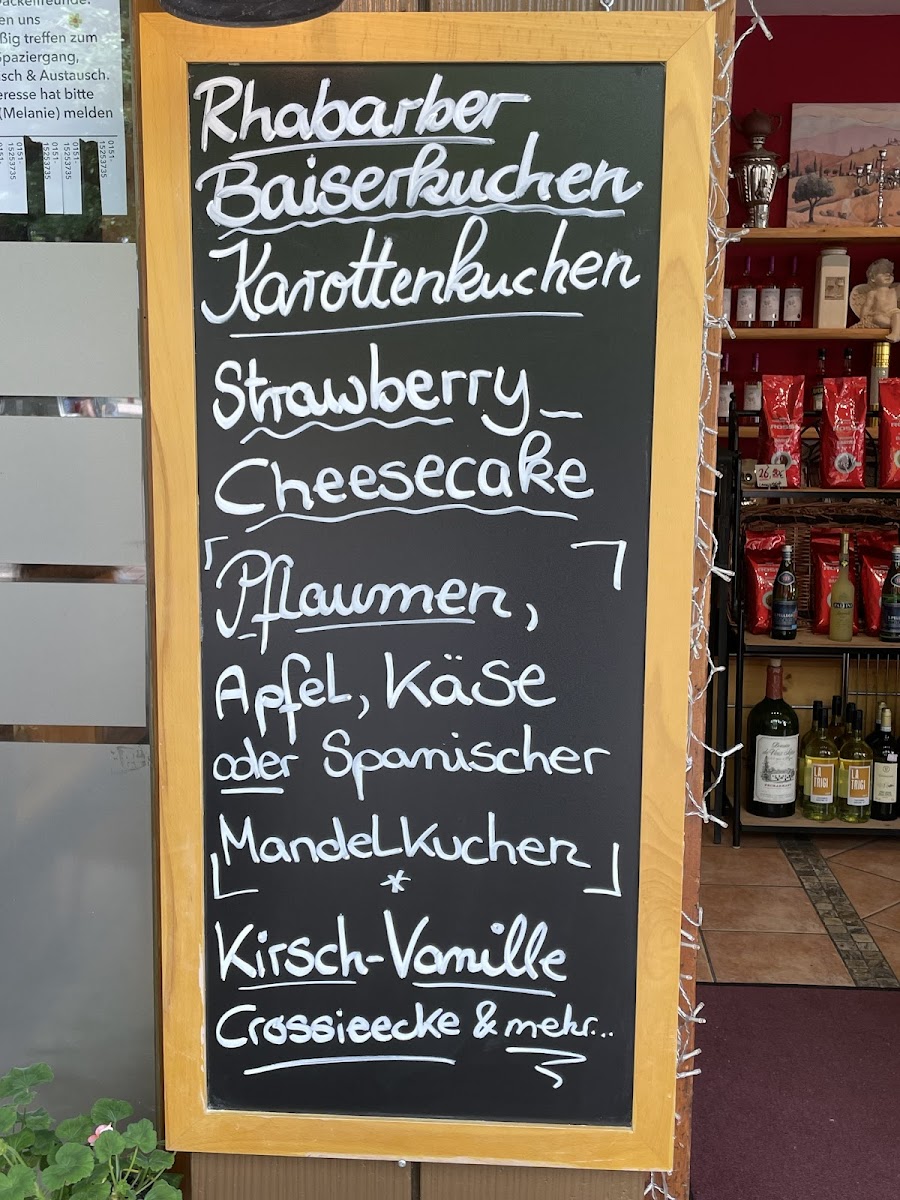 ackelfreunde.
en uns
ßig treffen zum
paziergang,
sch & Austausch.
eresse hat bitte
(Melanie) melden
0151-
15253735
0151-
15253735
0151-
15253735
Rhabarber
Baiserkuchen
Karottenkuchen
Strawberry_
Cheesecake
Pflaumen,
Apfel, Käse
oder Spanischer
Mandelkuchen
*
Kirsch-Vanille
Crossieecke & mehr...
26,8x
LA
TRIGI
LA
TRIGI